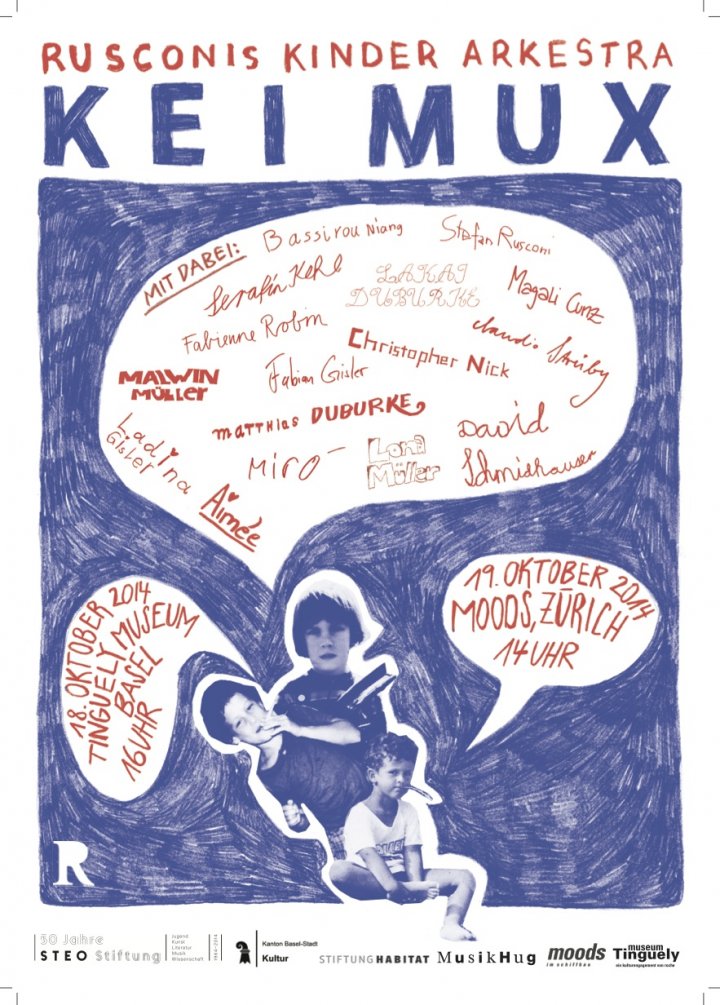 RUSCONIS KINDER ARKESTRA
KEI MUX
MIT DABEI:
Bassirou Niang
Stefan Rusconi
Serafin Kehl
LAKAJ
DUBURKE
Magali Cunz
Fabienne Robin
Claudio Strüby
Christopher Nick
MALWIN
MÜLLER
Fabian Gisler
MATTHIAS DUBURKE
Ladina
Gisler
MIRO
Lona
Müller
DAVID
Schmidhauser
Aimée
18. OKTOBER 2014
TINGUELY MUSEUM
BASEL
16 UHR
19. OKTOBER 2014
MOODS, ZÜRICH
14 UHR
R
50 Jahre
STEO Stiftung
Jugend
Kunst
Literatur
Musik
Wissenschaft
1964–2014
Kanton Basel-Stadt
Kultur
STIFTUNG HABITAT
MusikHug
moods
im schiffbau
museum
Tinguely
ein kulturengagement von roche